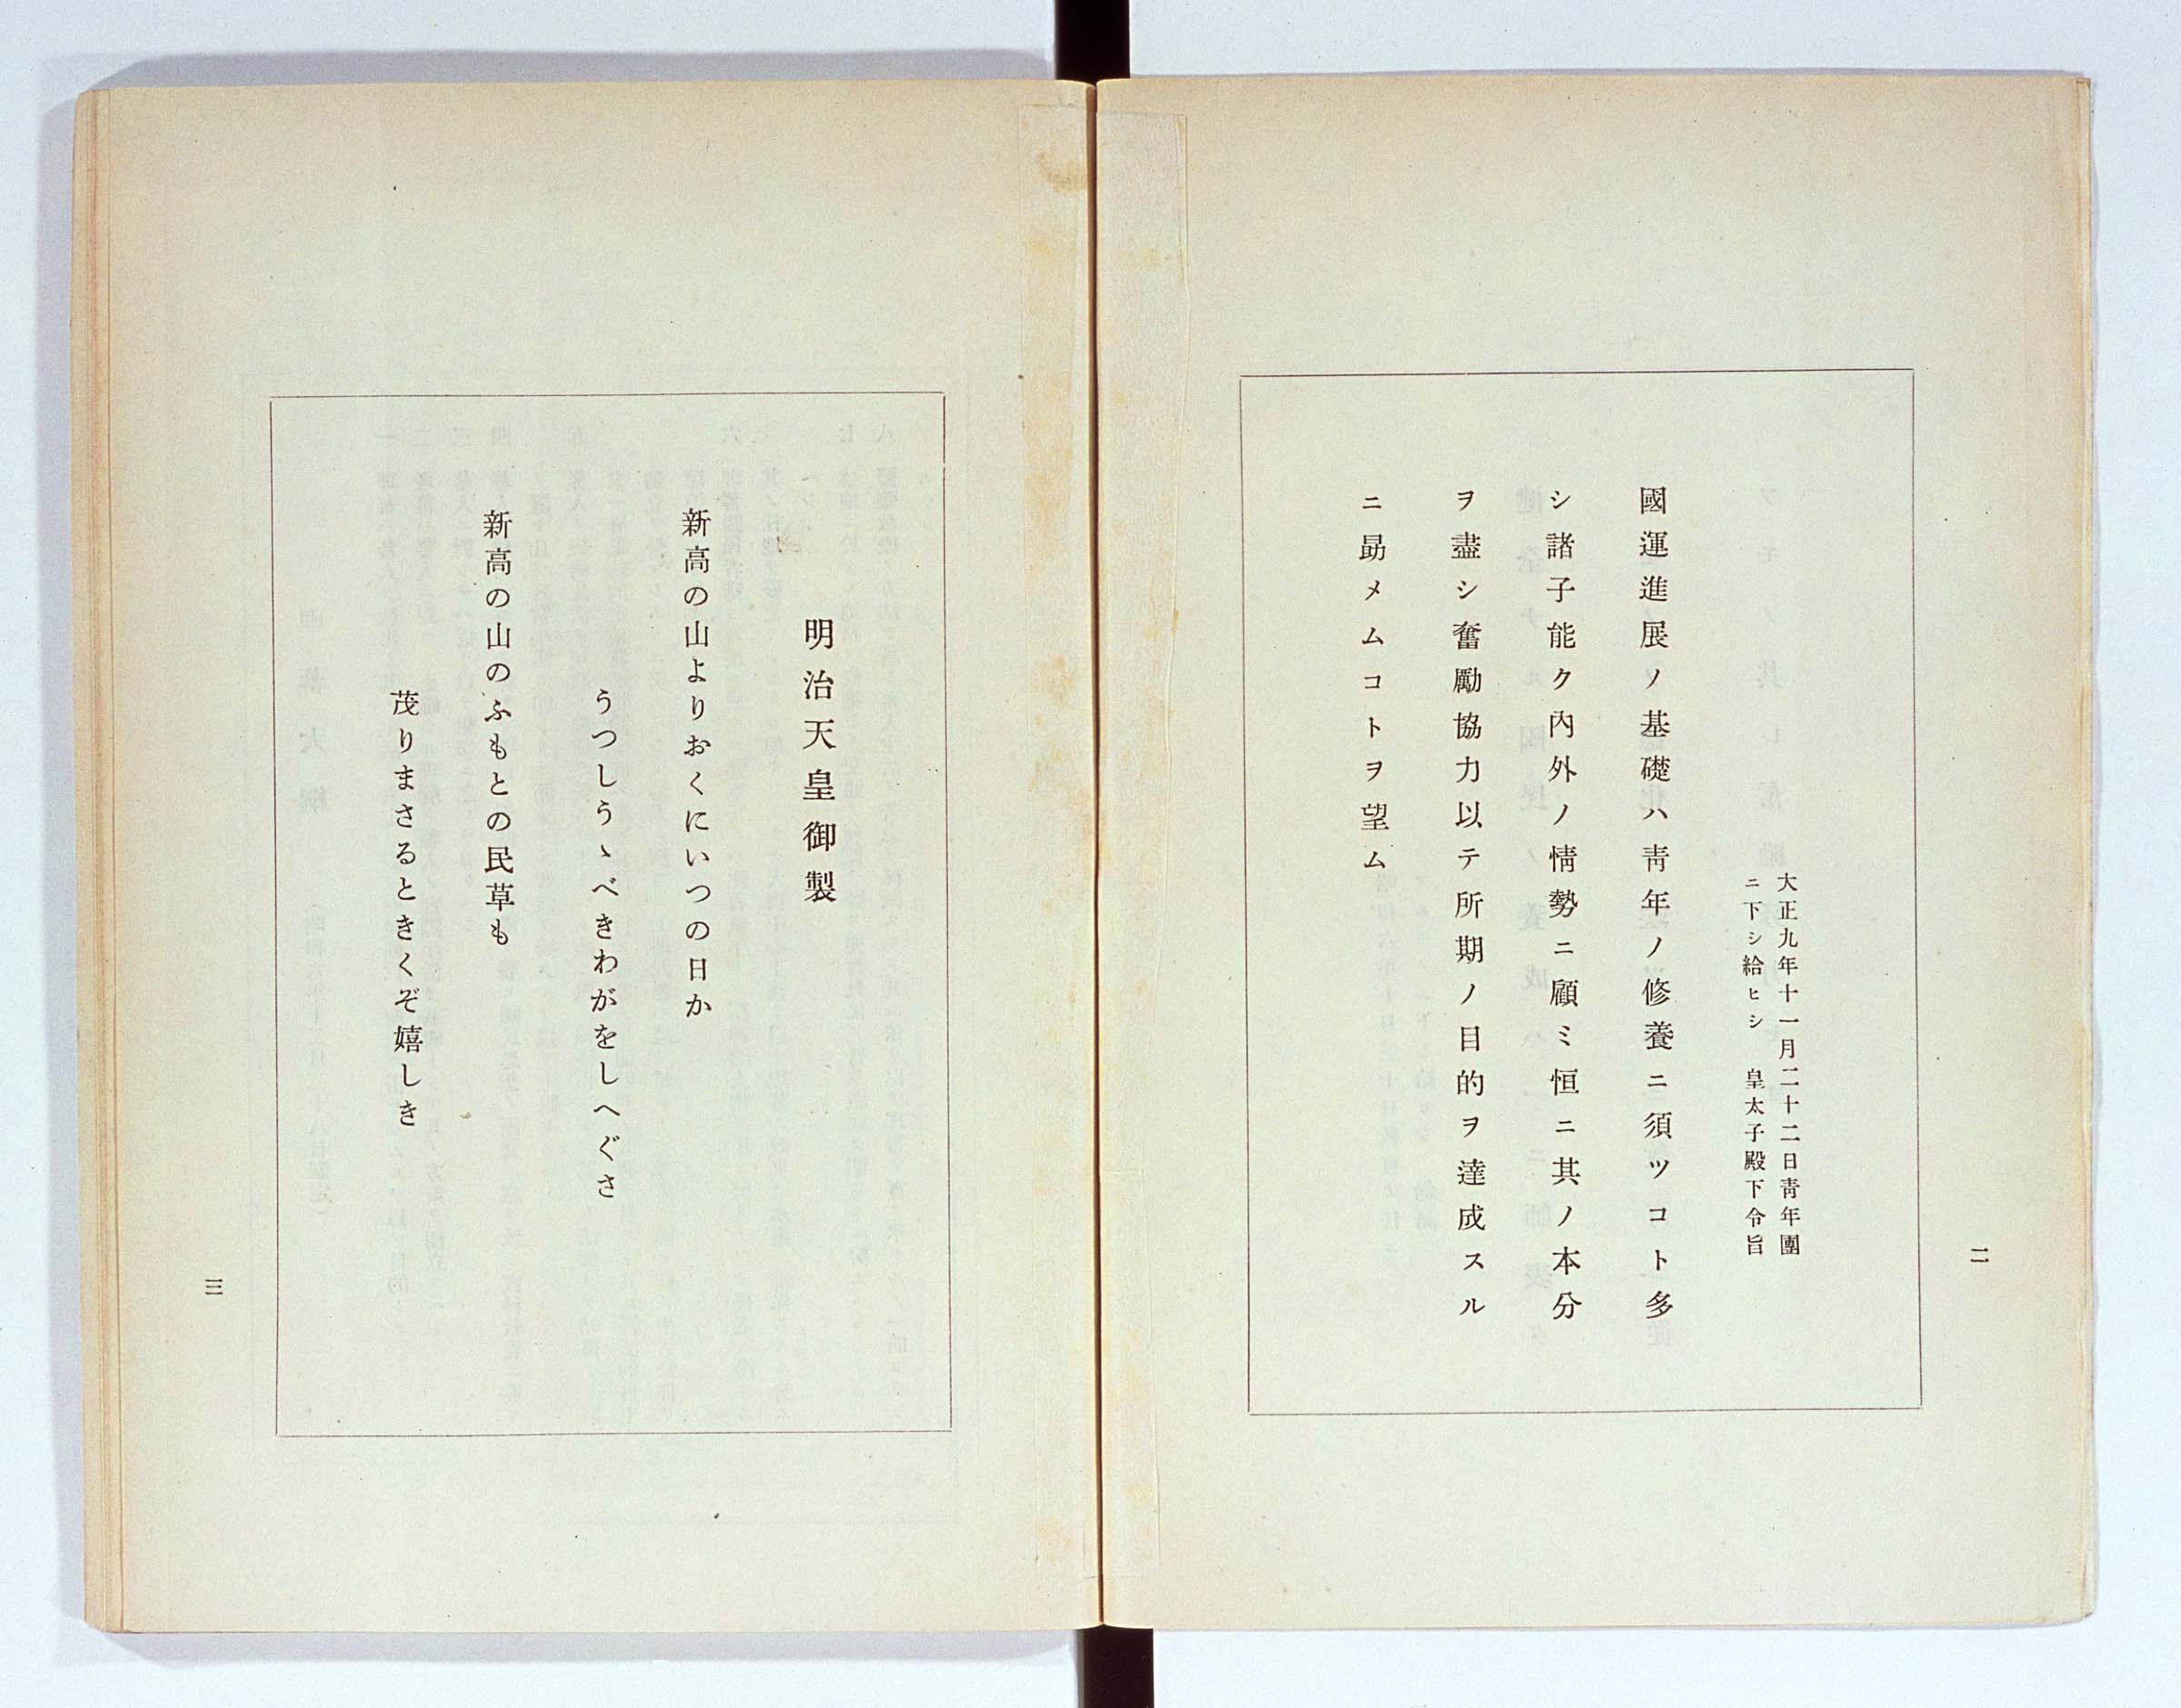 二
大正九年十一月二十二日靑年團
ニ下シ給ヒシ　皇太子殿下令旨
國運進展ノ基礎ハ靑年ノ修養ニ須ツコト多
シ諸子能ク內外ノ情勢ニ顧ミ恒ニ其ノ本分
ヲ盡シ奮勵協力以テ所期ノ目的ヲ達成スル
ニ勗メムコトヲ望ム
明治天皇御製
新高の山よりおくにいつの日か
うつしうゝべきわがをしへぐさ
新高の山のふもとの民草も
茂りまさるときくぞ嬉しき
三